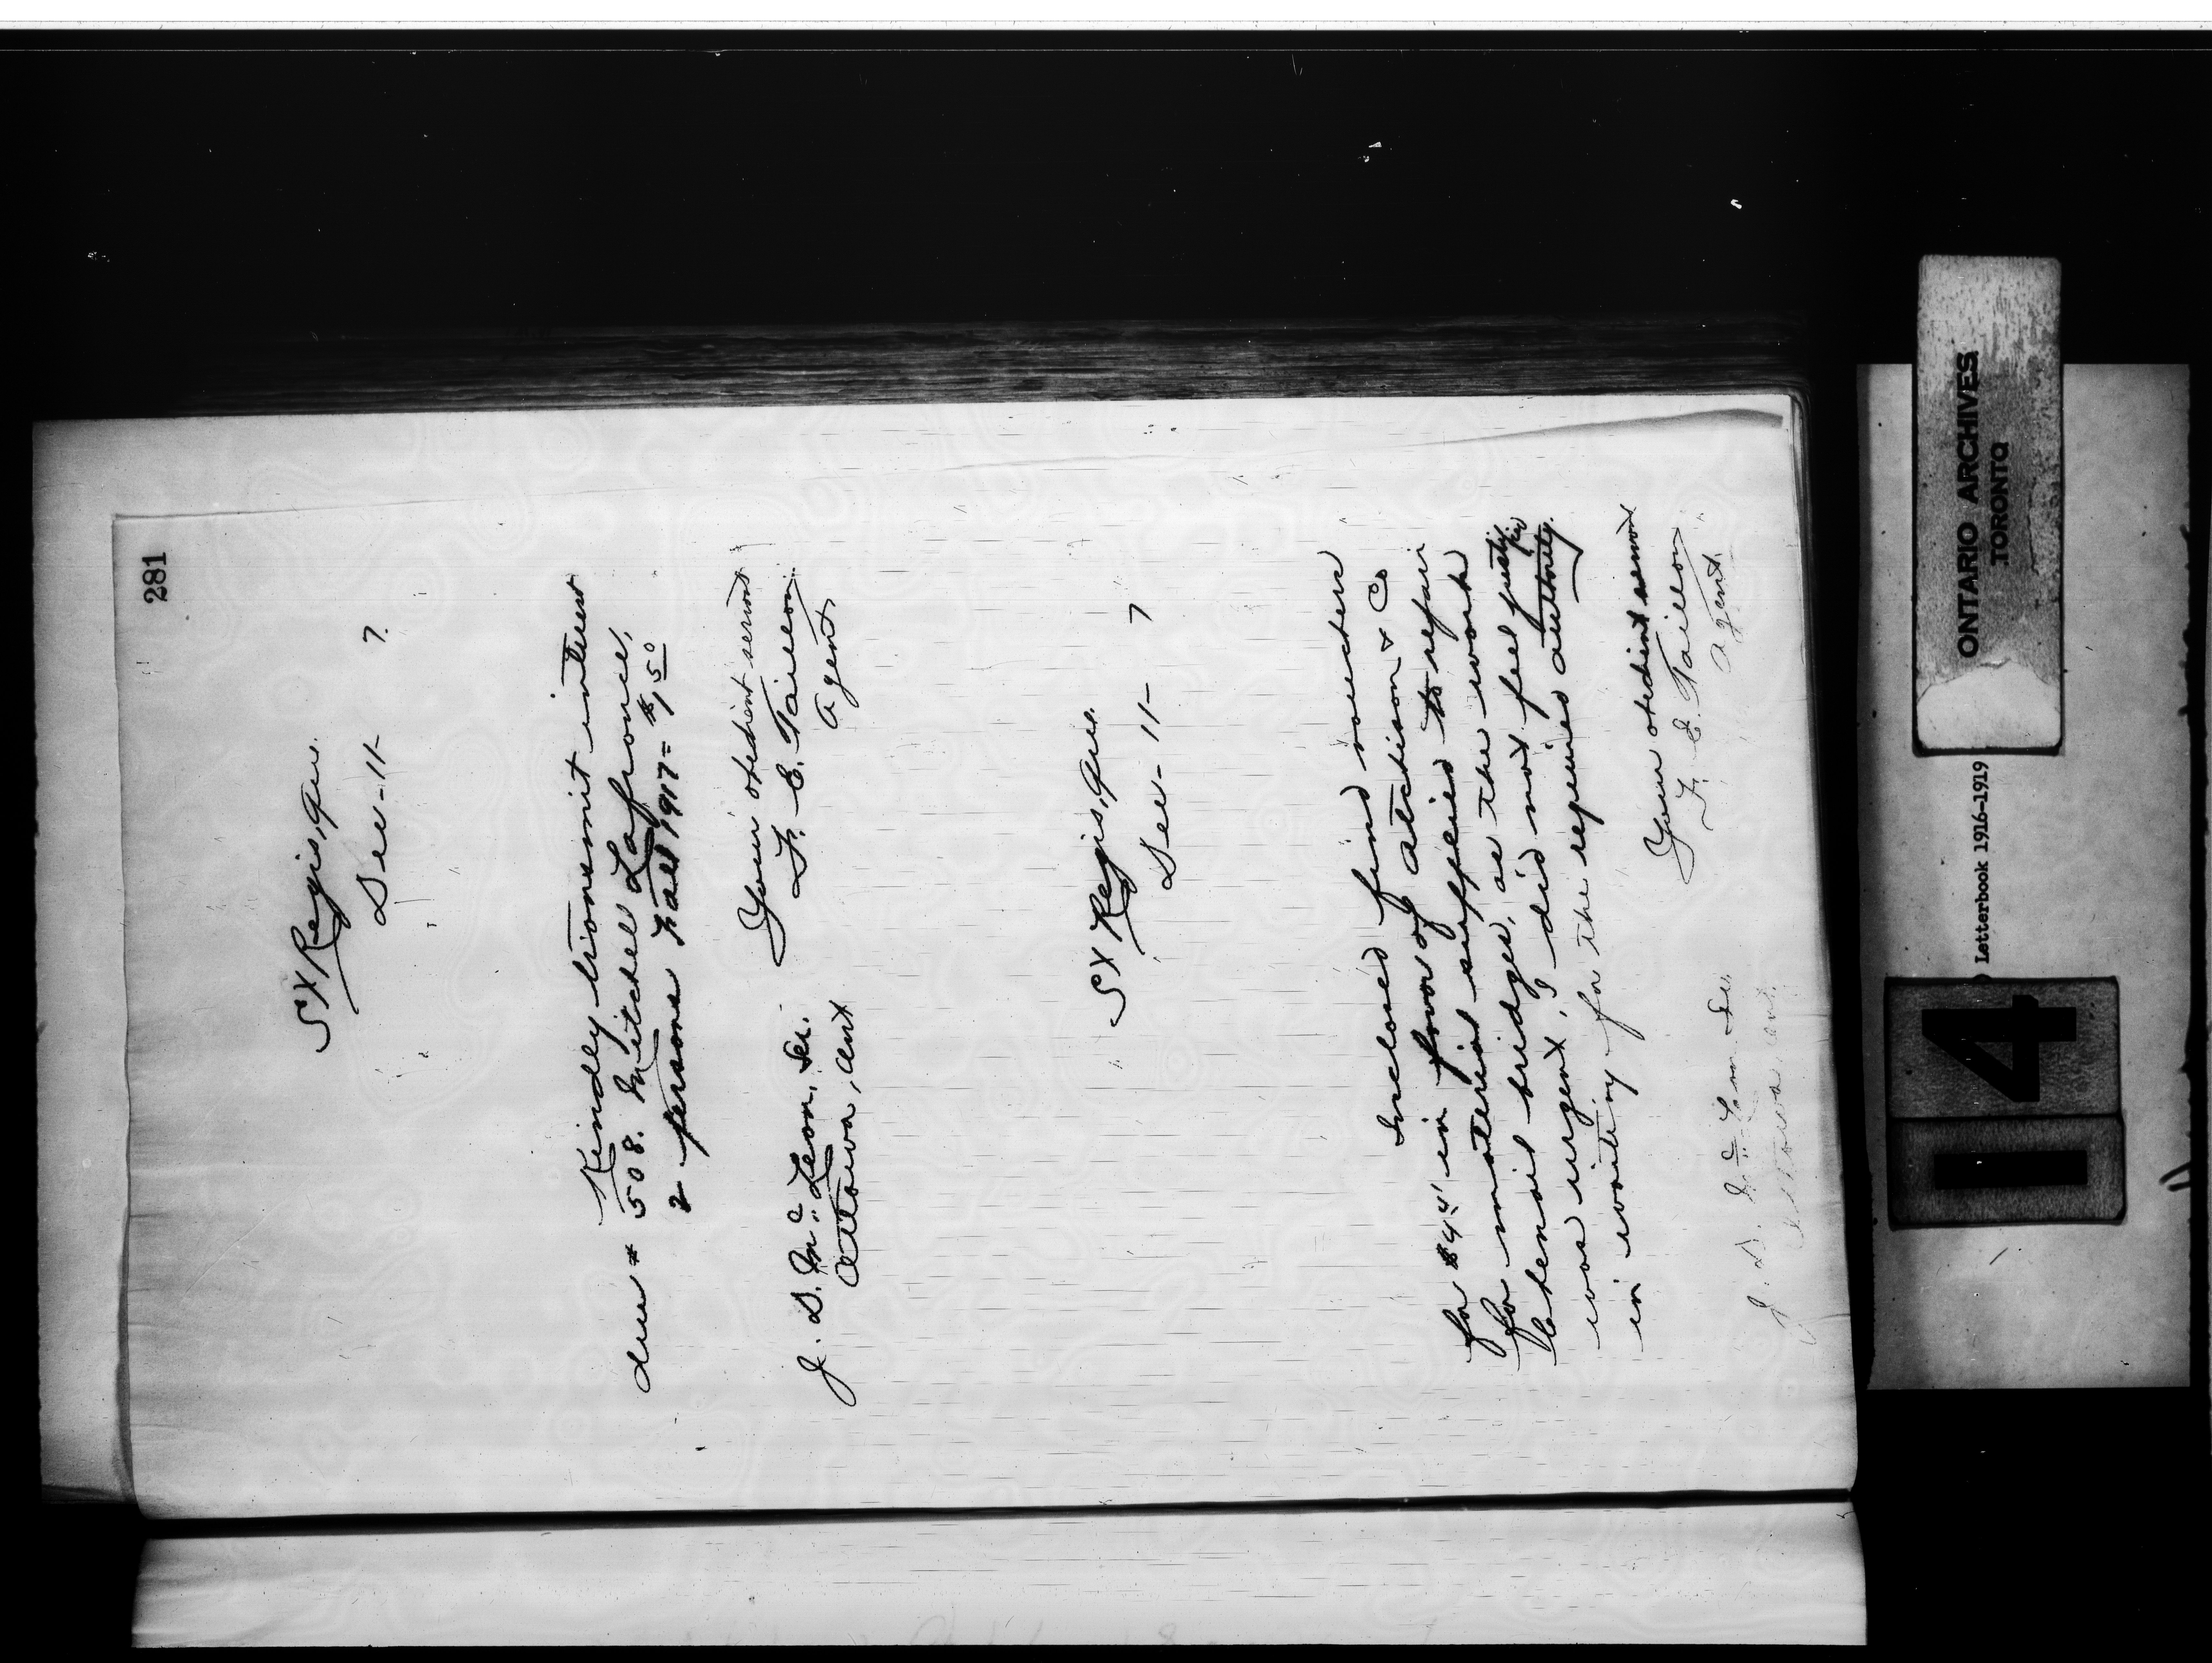 281
St Regis, Que.
Dec - 11 - 7.
Kindly transmit interest
due # 508. Mitchell Lafrance,
2 persons Fall 1917 = $1.50
Your obedient servant
F. E. Taillon
Agent
J. D. McLean, Sec.
Ottawa, Ont
St Regis, Que.
Dec - 11 - 7
Inclosed find vouchers
for in favor of Atchison & Co
for material supplied to repair
bridges, as the work
was urgent, I did not feel justified
in waiting for the required authority.
Your obedient servant
F. E. Taillon
Agent.
J. D. McLean Sec.
Ottawa, Ont.
ONTARIO ARCHIVES
TORONTO
Letterbook 1916-1919
14